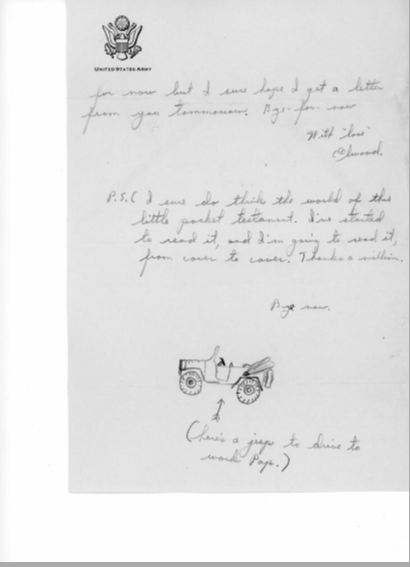 UNITED STATES ARMY
for now but I sure hope I get a letter
from you tommorow. Bye-for-now
With "love"
Elwood.
P.S.( I sure do think the world of this
little pocket testament. I've started
to read it, and I'm going to read it,
from cover to cover. Thanks a million.
Bye now.
(here's a jeep to drive to
work Pop.)